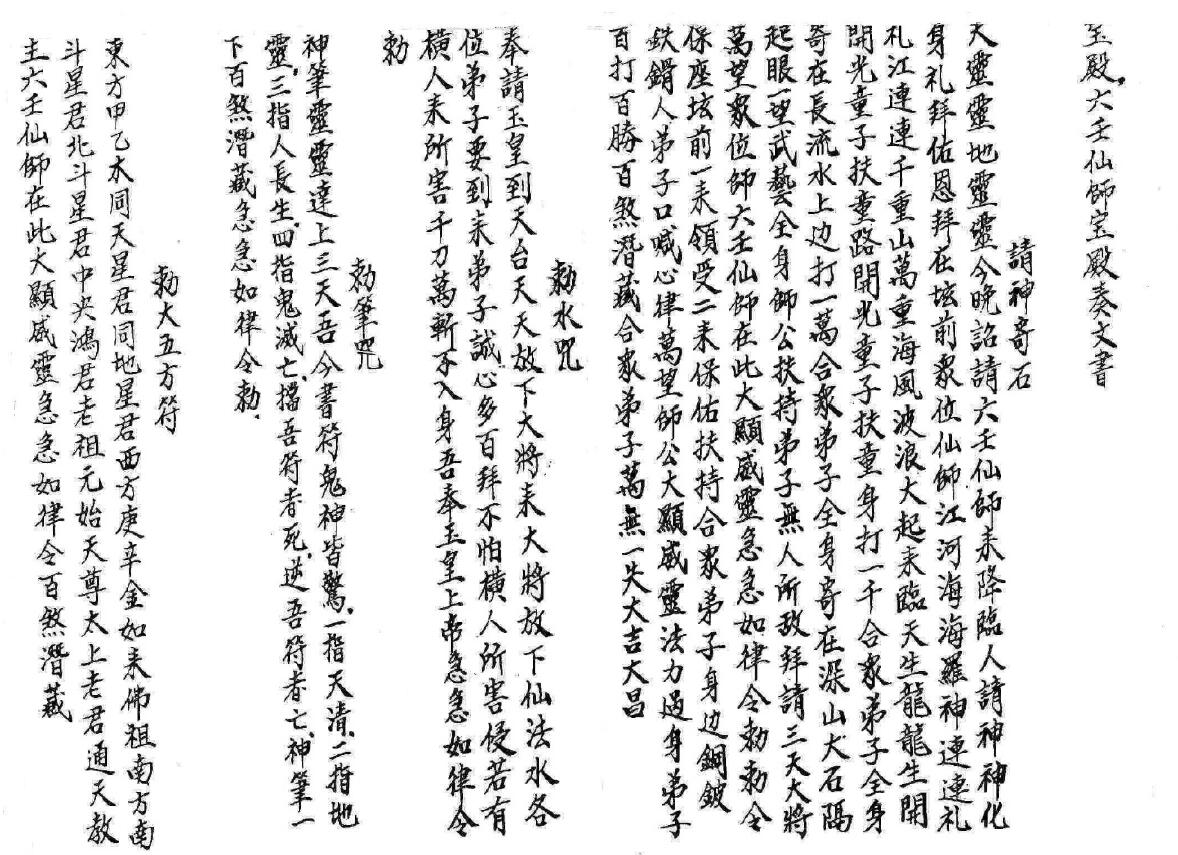 玉殿，六壬仙師宝殿奏文書
請神寄石
天靈靈地靈靈今晚詔請六壬仙師来降臨人請神神化
身礼拜佑恩拜在坛前眾位仙師江河海海羅神連連礼
礼江連連千重山萬重海風波浪大起来臨天生龍龍生開
開光童子扶童路開光童子扶童身打一千合眾弟子全身
寄在長流水上边打一萬合眾弟子全身寄在深山大石隔
起眼一望武藝全身師公扶持弟子無人所敌拜請三天大將
萬望眾位師六壬仙師在此大顯威靈急急如律令勅勅令
保座坛前一来領受二来保佑扶持合眾弟子身边銅鈹
鉄鎖人弟子口喊心律萬望師公大顯威靈法力過身弟子
百打百勝百煞潛藏合眾弟子萬無一失大吉大昌
勅水咒
奉請玉皇到天台天天放下大將来大將放下仙法水各
位弟子要到来弟子誠心多百拜不怕橫人所害侵若有
橫人来所害千刀萬斬不入身吾奉玉皇上帝急急如律令
勅
勅筆咒
神筆靈靈達上三天吾今書符鬼神皆驚，一指天清，二指地
靈，三指人長生，四指鬼滅亡，擋吾符者死，逆吾符者亡，神筆一
下百煞潛藏急急如律令勅，
勅大五方符
東方甲乙木同天星君同地星君西方庚辛金如来佛祖南方南
斗星君北斗星君中央鴻君老祖元始天尊太上老君通天教
主六壬仙師在此大顯威靈急急如律令百煞潛藏